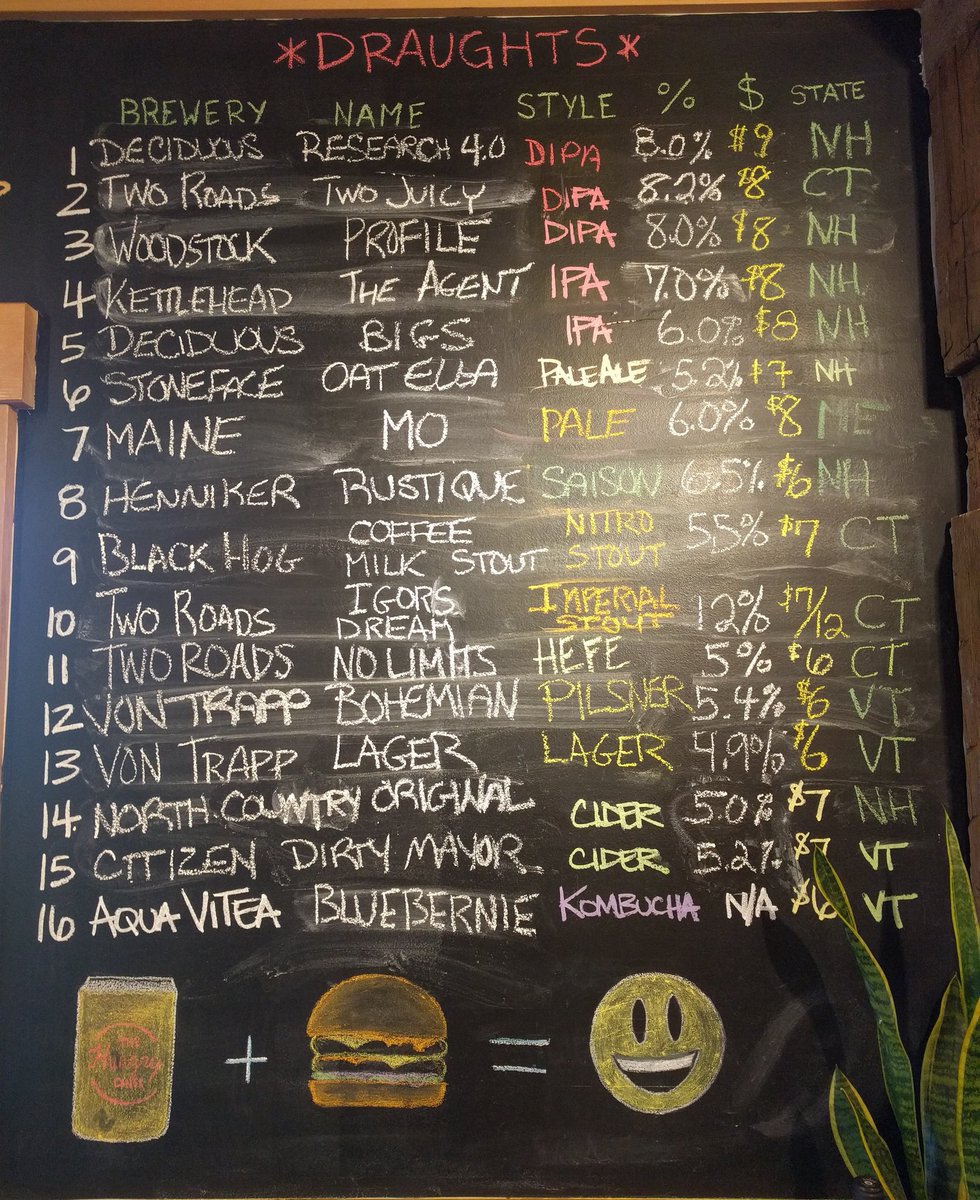 *DRAUGHTS*
BREWERY NAME STYLE % $ STATE
1 DECIDUOUS RESEARCH 4.0 DIPA 8.0% $9 NH
2 TWO ROADS TWO JUICY DIPA 8.2% $8 CT
3 WOODSTOCK PROFILE DIPA 8.0% $8 NH
4 KETTLEHEAD THE AGENT IPA 7.0% $8 NH
5 DECIDUOUS BIGS IPA 6.0% $8 NH
6 STONEFACE OAT ELLA PALE ALE 5.2% $7 NH
7 MAINE MO PALE 6.0% $8 ME
8 HENNIKER RUSTIQUE SAISON 6.5% $6 NH
9 BLACK HOG COFFEE MILK STOUT NITRO STOUT 55% $7 CT
10 TWO ROADS IGORS DREAM IMPERIAL STOUT 12% $7/12 CT
11 TWO ROADS NO LIMITS HEFE 5% $6 CT
12 VON TRAPP BOHEMIAN PILSNER 5.4% $6 VT
13 VON TRAPP LAGER LAGER 4.9% $6 VT
14 NORTH COUNTRY ORIGINAL CIDER 5.0% $7 NH
15 CITIZEN DIRTY MAYOR CIDER 5.2% $7 VT
16 AQUA VITEA BLUEBERNIE KOMBUCHA N/A $6 VT
THE
+ =